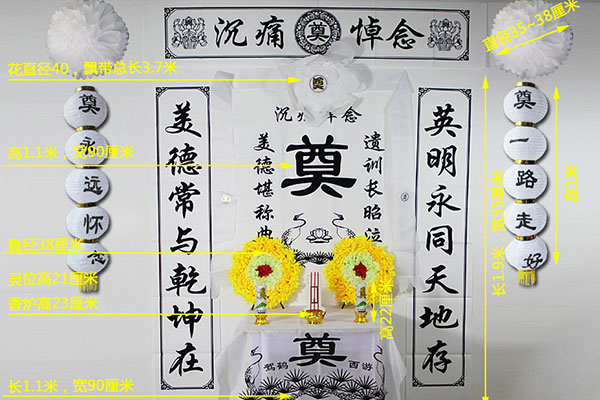 沉痛奠悼念
直径35~38厘米
花直径40，飘带总长3.7米
奠
奠永远怀念
美德常与乾坤在
沉痛悼念
美德堪称典
奠
遗训长昭
英明永同天地存
奠一路走好
高1米
长1.9米，宽35厘米
高1.1米，宽90厘米
直径38厘米
灵位高21厘米
香炉高23厘米
高22厘米
奠
奠
奠
驾鹤西游
长1.1米，宽90厘米